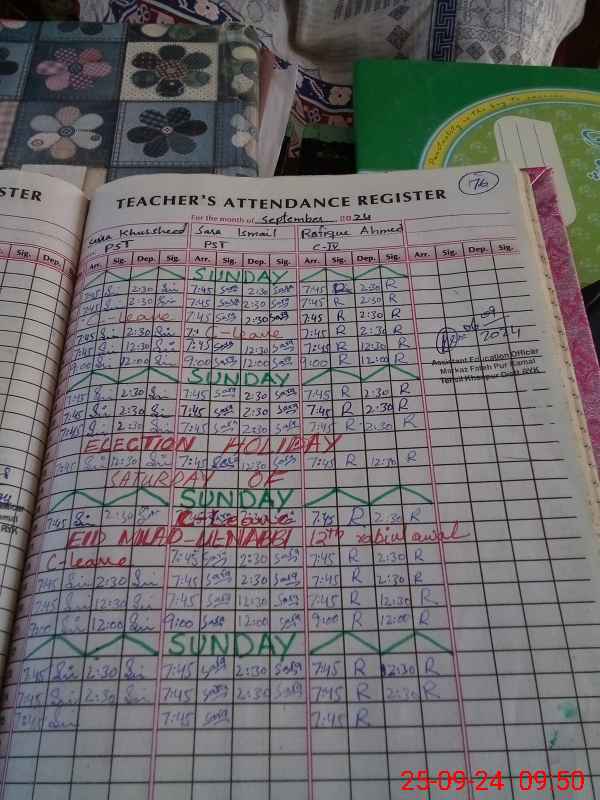 STER
TEACHER'S ATTENDANCE REGISTER
76
For the month of September 2024
Khursheed Sara Ismail Rafique Ahmed
PST PST C-IV
Sig. Dep. Sig. Arr. Sig. Dep. Sig. Arr. Sig. Dep. Sig. Arr. Sig. Dep. Sig. Arr. Sig. Dep. Sig.
SUNDAY
7:45 2:30 7:45 Sara 2:30 Sara 7:45 R 2:30 R
7:45 2:30 7:45 Sara 2:30 Sara 7:45 R 2:30 R
C-leave 7:45 Sara 2:30 Sara 7:45 R 2:30 R
7:45 12:30 C-leave 7:45 R 2:30 R
7:45 12:30 7:45 Sara 12:30 Sara 7:45 R 12:30 R
9:00 12:00 9:00 Sara 12:00 Sara 9:00 R 12:00 R
SUNDAY
7:45 2:30 7:45 Sara 2:30 Sara 7:45 R 2:30 R
7:45 2:30 7:45 Sara 2:30 Sara 7:45 R 2:30 R
7:45 2:30 7:45 Sara 2:30 Sara 7:45 R 2:30 R
ELECTION HOLIDAY
7:45 12:30 7:45 Sara 12:30 Sara 7:45 R 12:30 R
SATURDAY OF
SUNDAY
7:45 2:30 C-leave 7:45 R 2:30 R
EID MILAD-UN-NABBI 12th rabiul awal
C-leave 7:45 Sara 2:30 Sara 7:45 R 2:30 R
7:45 2:30 7:45 Sara 2:30 Sara 7:45 R 2:30 R
7:45 12:30 7:45 Sara 12:30 Sara 7:45 R 12:30 R
12:00 9:00 Sara 12:00 Sara 9:00 R 12:00 R
SUNDAY
7:45 2:30 7:45 Sara 2:30 Sara 7:45 R 12:30 R
7:45 2:30 7:45 Sara 2:30 Sara 7:45 R 2:30 R
7:45 7:45 Sara 7:45 R
09
2024
Assistant Education Officer
Markaz Fateh Pur Kamal
Tehsil Khanpur Distt RYK
25-09-24 09:50